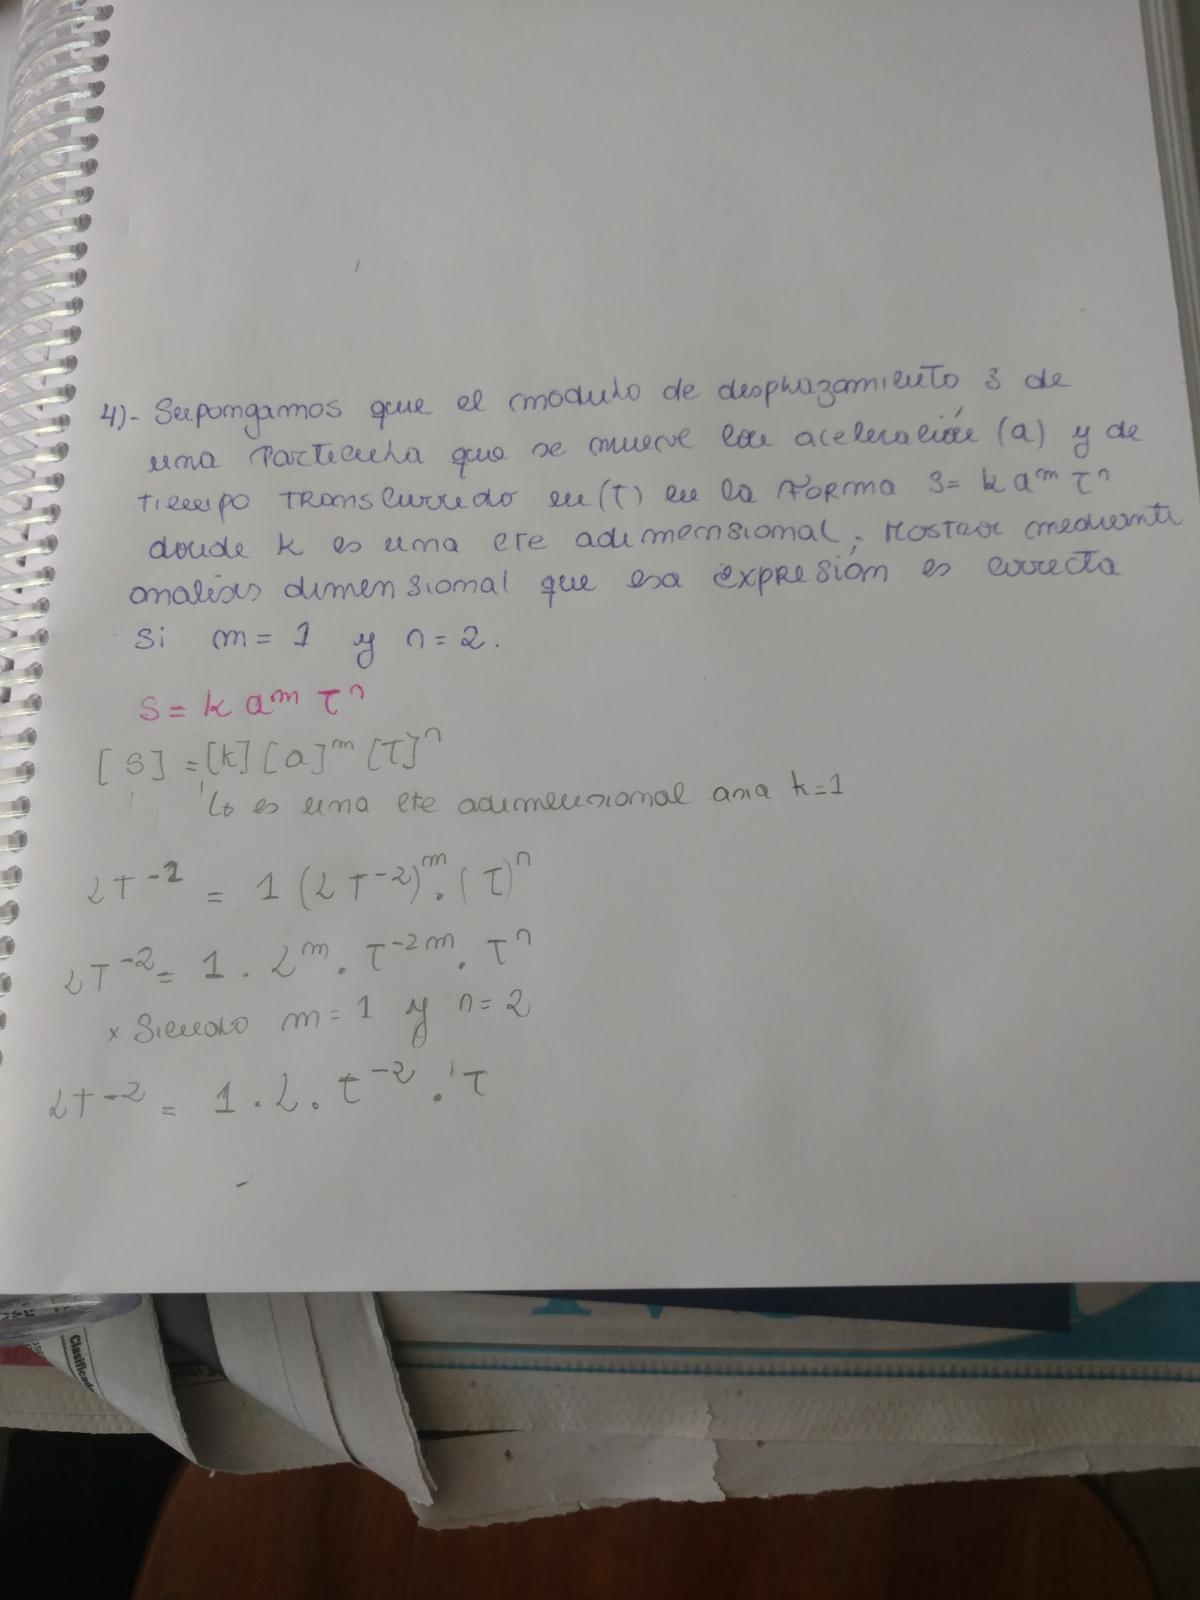 4)- Supongamos que el modulo de desplazamiento s de
una particula que se mueve con aceleración (a) y de
tiempo transcurrido en (T) en la forma S= k aᵐ Tⁿ
donde k es una cte adimensional. Mostrar mediante
analisis dimensional que esa expresión es correcta
si m= 1 y n=2.
S = k aᵐ Tⁿ
[S] = [k] [a]ᵐ [T]ⁿ
↳ es una cte adimensional k=1
LT⁻² = 1 (LT⁻²)ᵐ . (T)ⁿ
LT⁻² = 1 . Lᵐ . T⁻²ᵐ . Tⁿ
x Siendo m=1 y n=2
LT⁻² = 1 . L . t⁻² . T
Clasificad